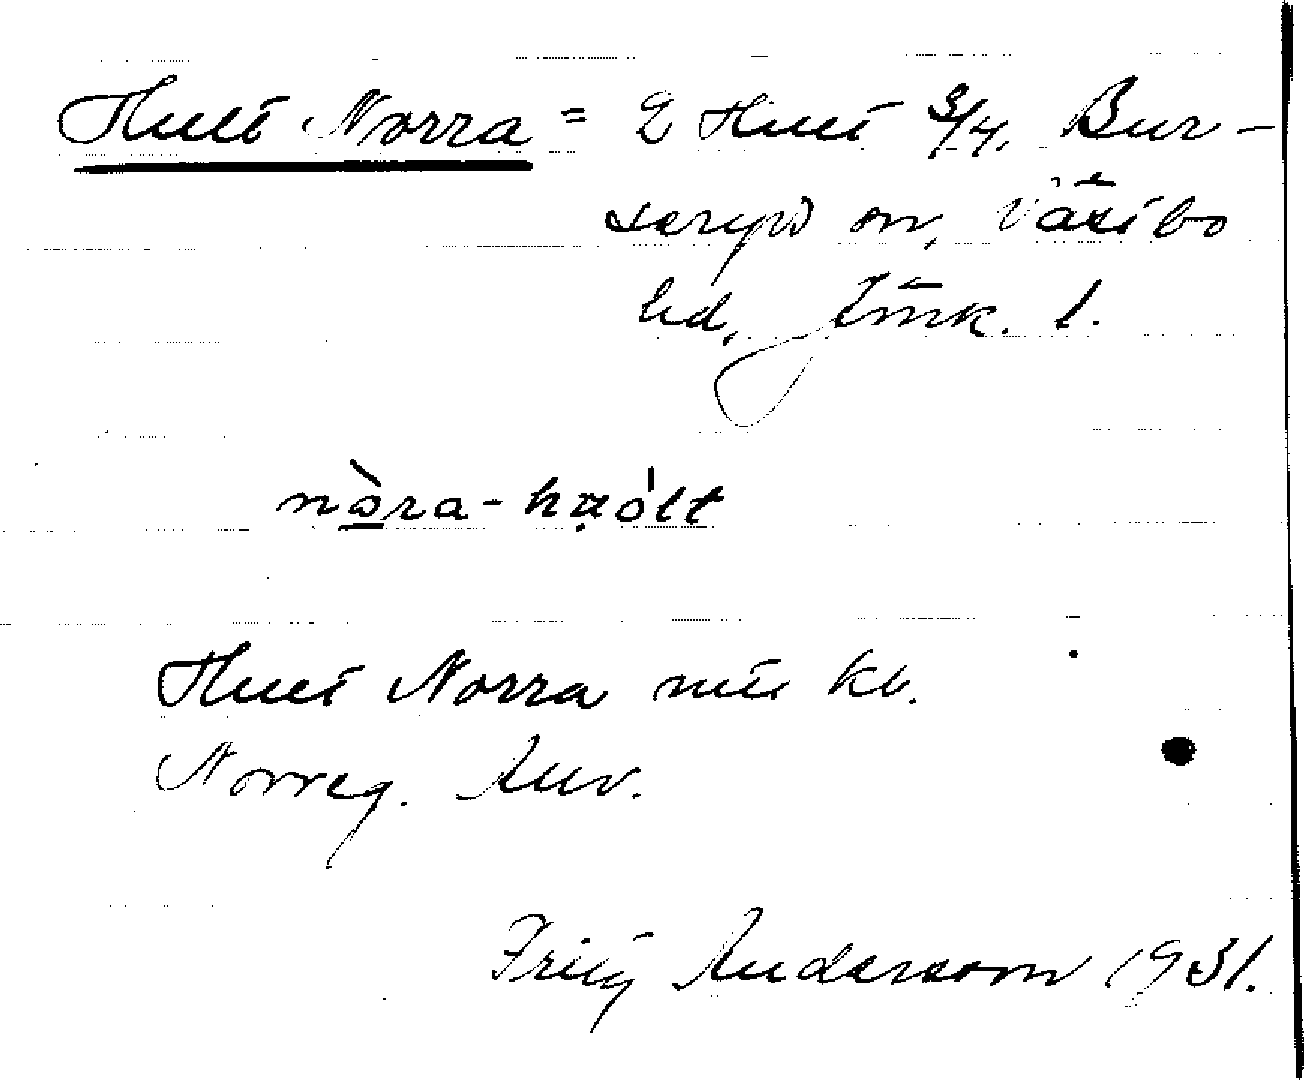 Hult Norra = 2 Hult 3/4, Bur-
seryd sn, Västbo
hd, Jönk. l.
nòra-hu̇ólt
Hult Norra mtl kb.
Norreg. Auv.
Fritz Andersson 1931.